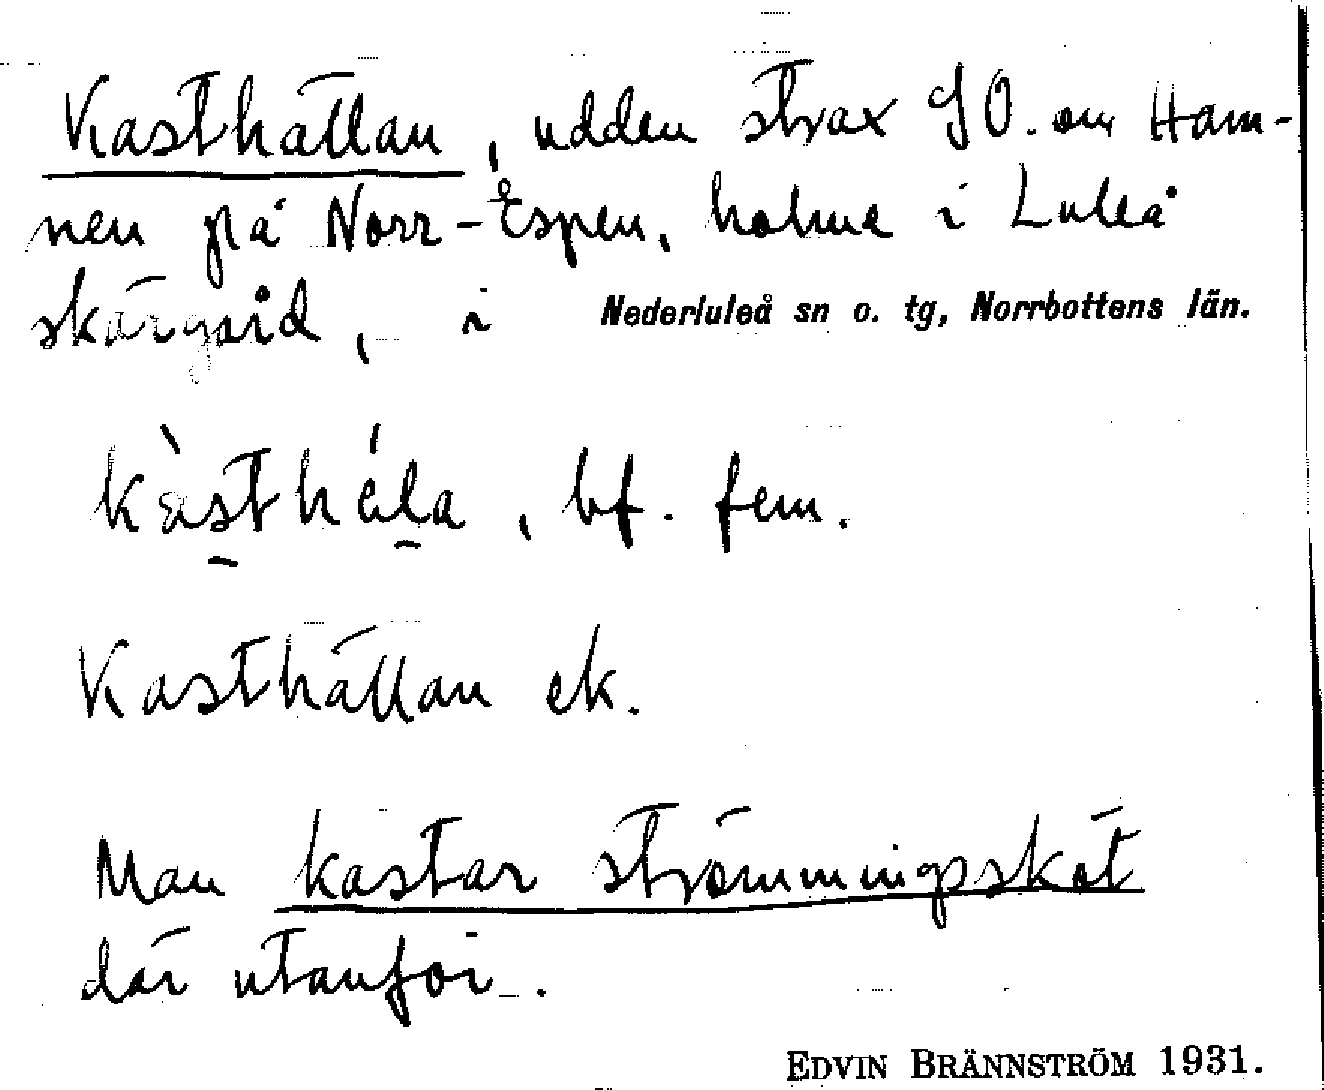 Kasthällan, udden strax SO. om Ham-
nen på Norr-Espen, holme i Luleå
skärgård, i Nederluleå sn o. tg, Norrbottens län.
kàsthéla, bf. fem.
Kasthällan ek.
Man kastar strömmingsköt
där utanför.
EDVIN BRÄNNSTRÖM 1931.